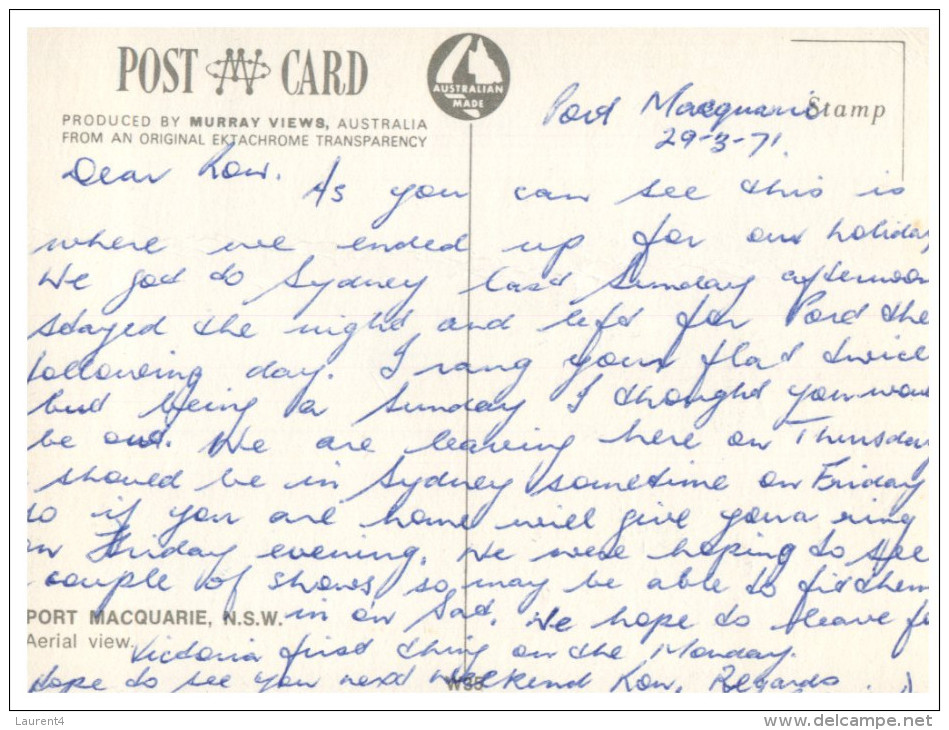 POST CARD
AUSTRALIAN
MADE
PRODUCED BY MURRAY VIEWS, AUSTRALIA
FROM AN ORIGINAL EKTACHROME TRANSPARENCY
Stamp
Port Macquarie
29-3-71.
Dear Ron.
As you can see this is
where we ended up for our holiday
We got to Sydney last Sunday afternoon
stayed the night and left for Port the
following day. I rang your flat twice
but being a Sunday I thought you wou
be out. We are leaving here on Thursday
should be in Sydney sometime on Friday
so if you are home will give you a ring
on Friday evening. We were hoping to see
couple of shows so may be able to fit them
in on Sat. We hope to leave fo
PORT MACQUARIE, N.S.W.
Aerial view.
Victoria first thing on the Monday.
Hope to see you next weekend Ron, Regards
W95
Laurent4
www.delcampe.net